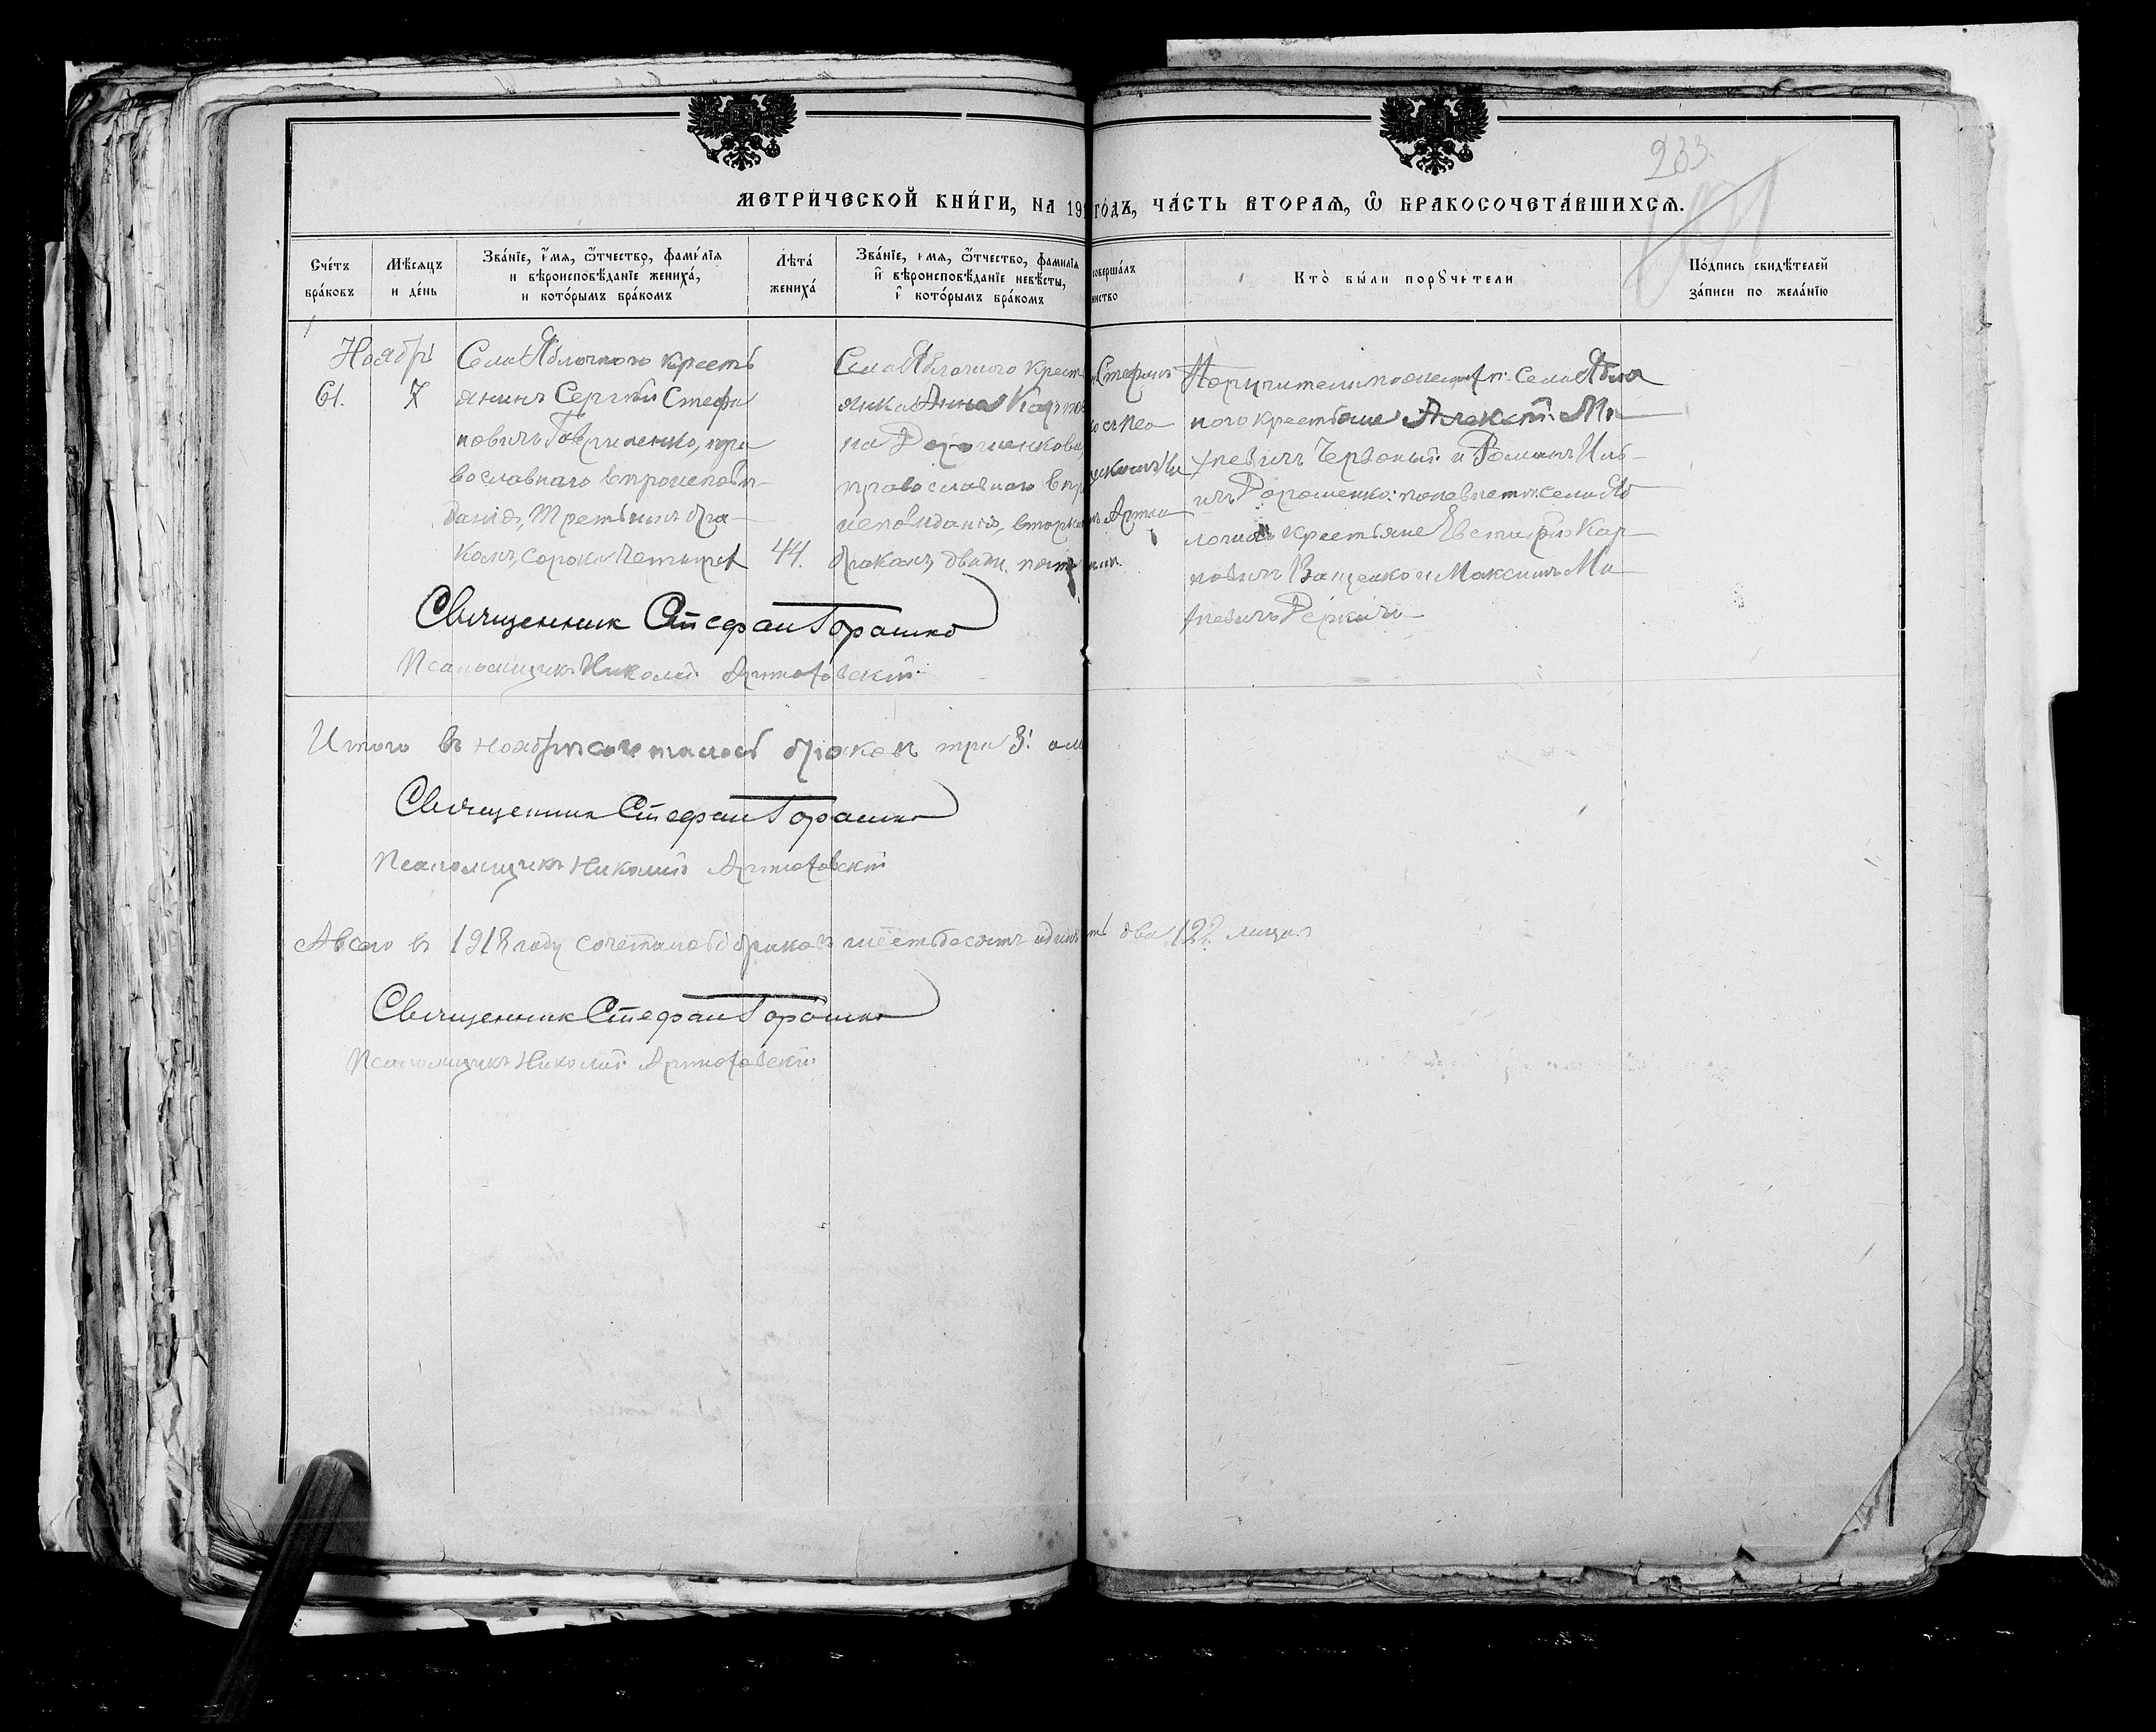 233.
МЕТРИЧЕСКОЙ КНИГИ, НА 19 ГОДЪ, ЧАСТЬ ВТОРАЯ, Ѡ БРАКОСОЧЕТАВШИХСЯ.
Счетъ
браковъ
Мѣсяцъ
и день
Званіе, имя, ѿчество, фамилія
и вѣроисповѣданіе жениха,
и которымъ бракомъ
Лѣта
жениха
Званіе, имя, ѿчество, фамилія
и вѣроисповѣданіе невѣсты,
и которымъ бракомъ
совершалъ
Кто были поручители
Подпись свидѣтелей
записи по желанію
Ноябрь
61.
7
Села Яблочнаго кресть
янинъ Сергѣй Стефа
новичъ Гавриленко, пра
вославнаго вѣроисповѣ
данія, третьимъ бра
комъ, сорока четырех
44.
Села Яблочнаго крест
янка Анна
на Дорошенкова,
православнаго
исповѣданія, вторы
бракомъ, двадц.
Стефанъ
Поручители по женихѣ: села Ябло
наго крестьяне Алексѣй Ми
хневичъ Червоный и Романъ Иль
ичъ Дорошенко: по невѣстѣ: села Яб
лочнаго крестьяне Евстафій Кар
повичъ Ващенко и Максимъ Ми
хневичъ
Священник Стефан Горашко
Псаломщикъ Николай Артюховскій
Итого въ ноябрѣ сочеталось браковъ три 3:
Священник Стефан Горашко
Псаломщикъ Николай Артюховскій
А всего в 1918 году сочеталось браковъ шестьдесятъ одинъ два 122 лица
Священник Стефан Горашко
Псаломщикъ Николай Артюховскій